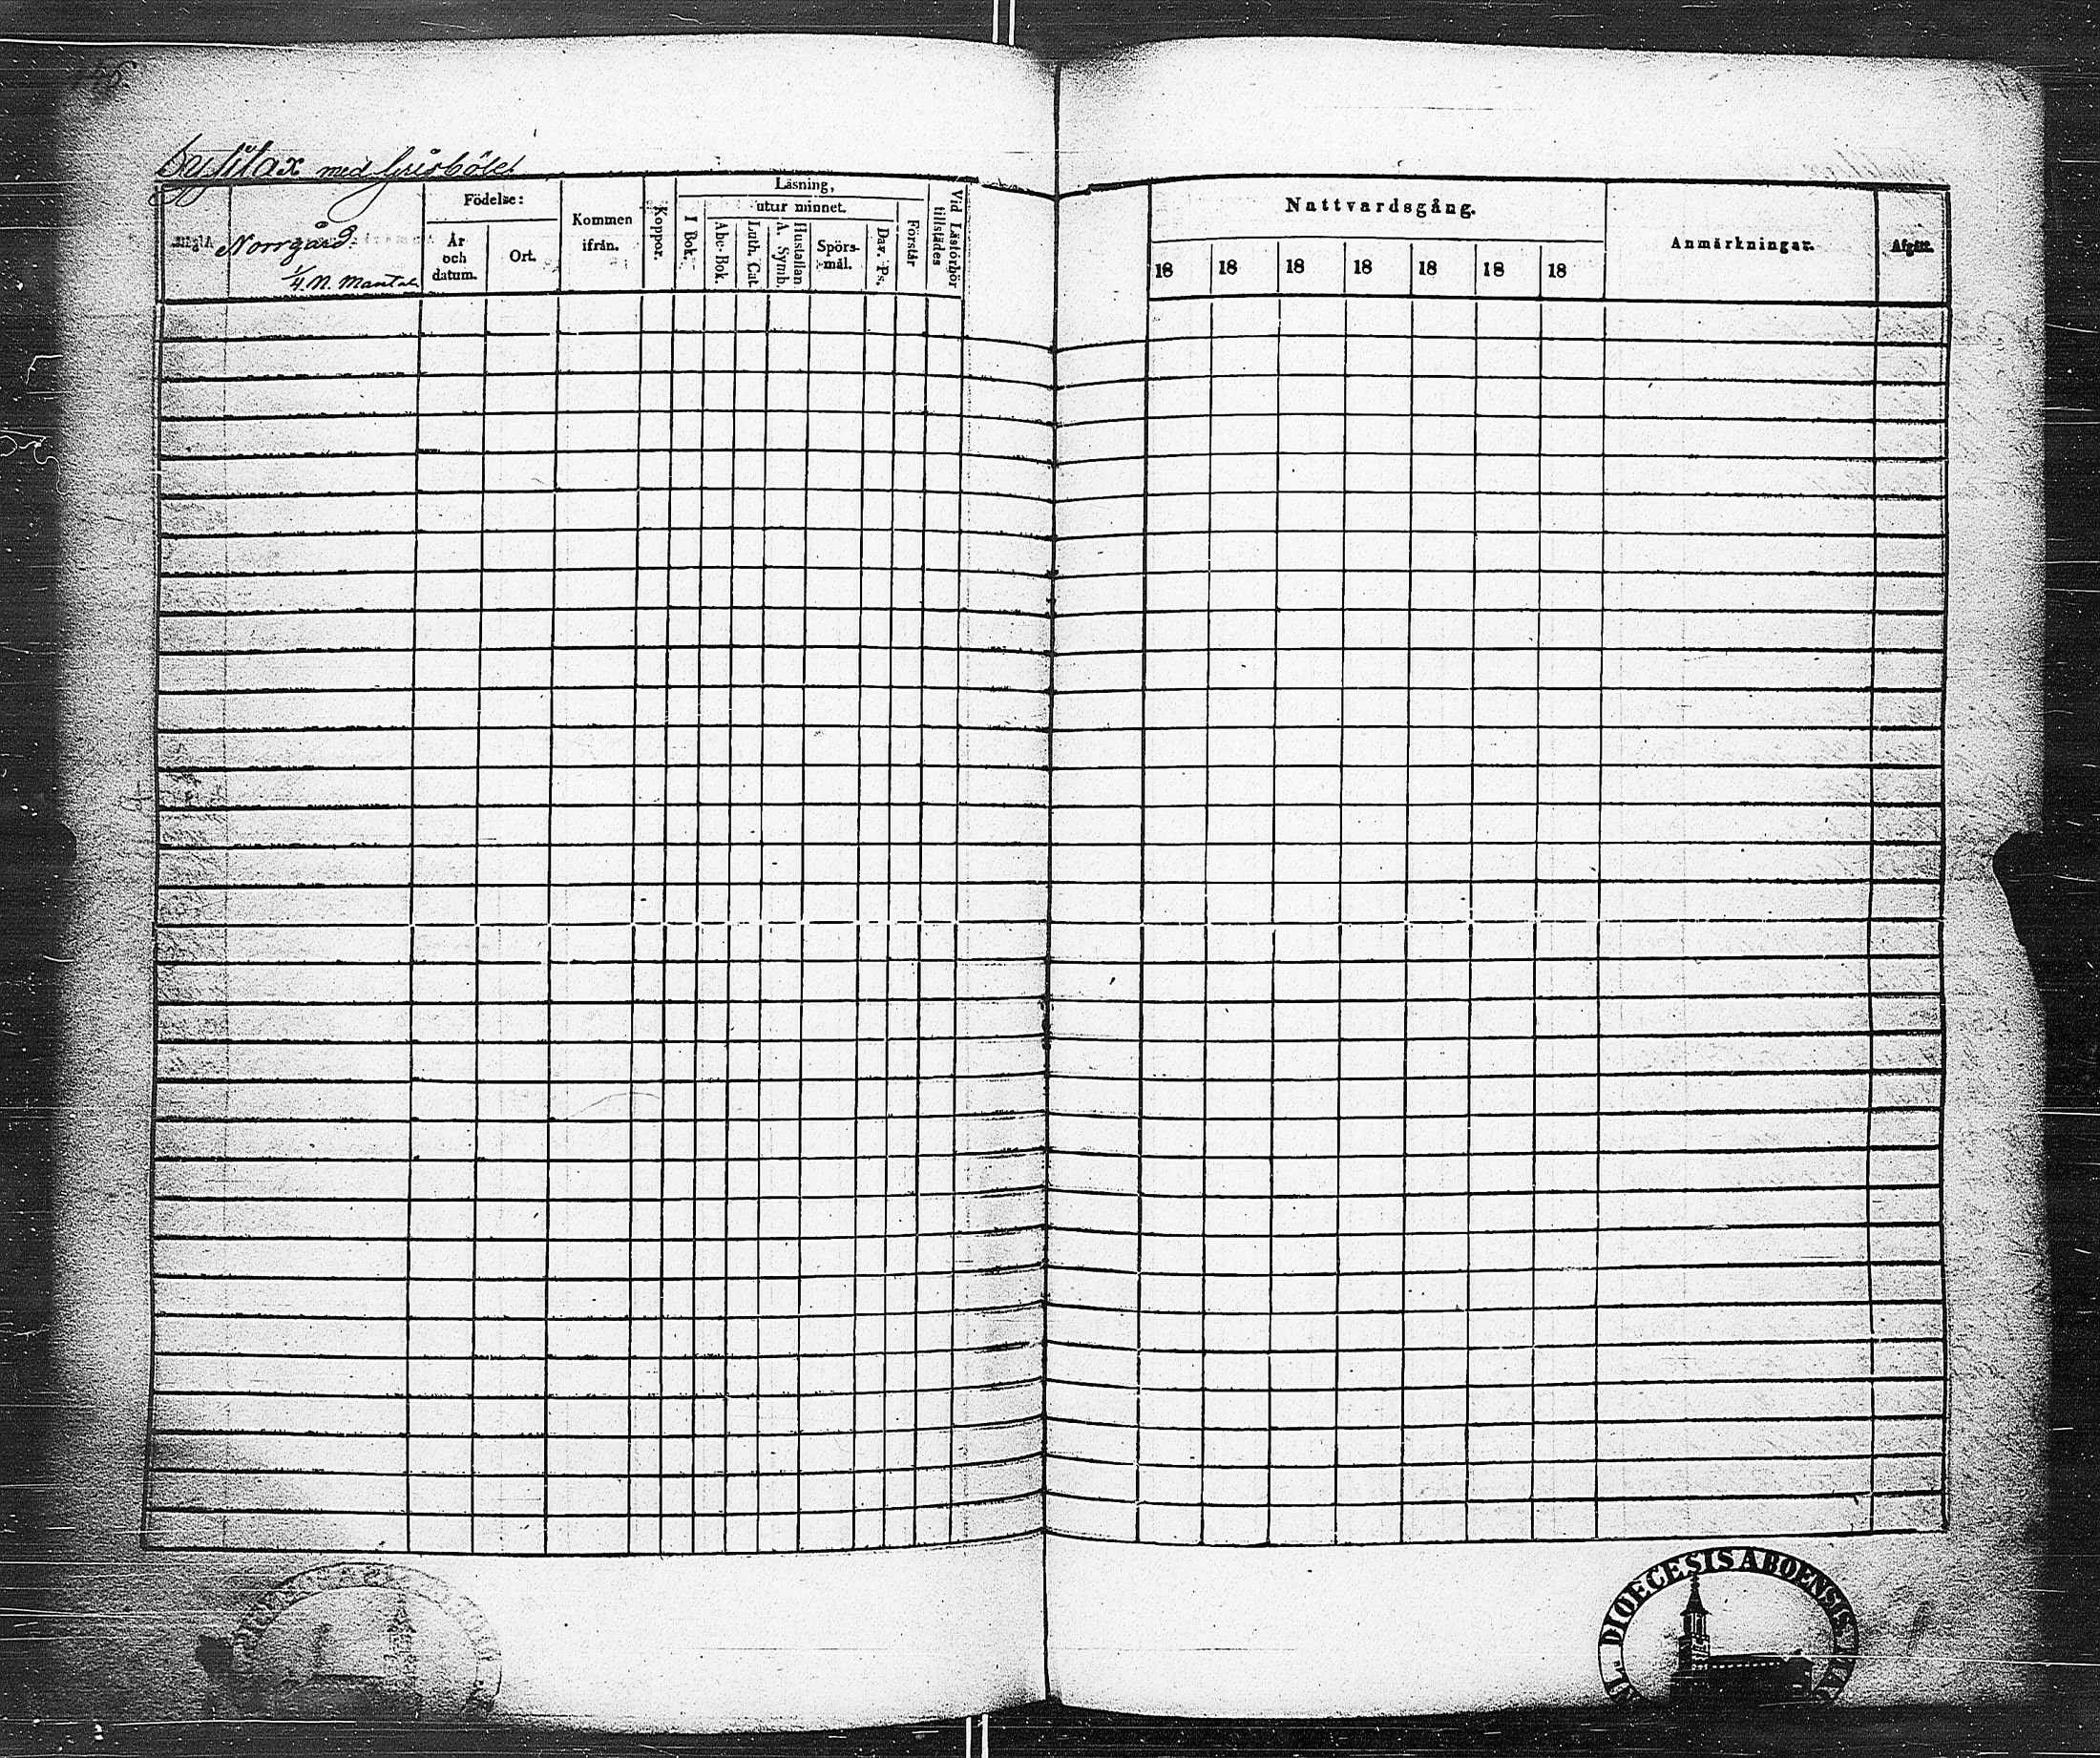 med
Norrgård
1/4 M. Mantal
Födelse:
År
och
datum.
Ort.
Kommen
ifrån.
Koppor.
Läsning,
I Bok.
utur minnet.
Abc-Bok.
Luth. Cat.
Hustaflan
A. Symb.
Spörs-
mål.
Dav. Ps.
Förstår
Vid Läsförhör
tillstädes
Nattvardsgång.
18 18 18 18 18 18 18
Anmärkningar.
Afgått.
DIOECESIS ABOENSIS